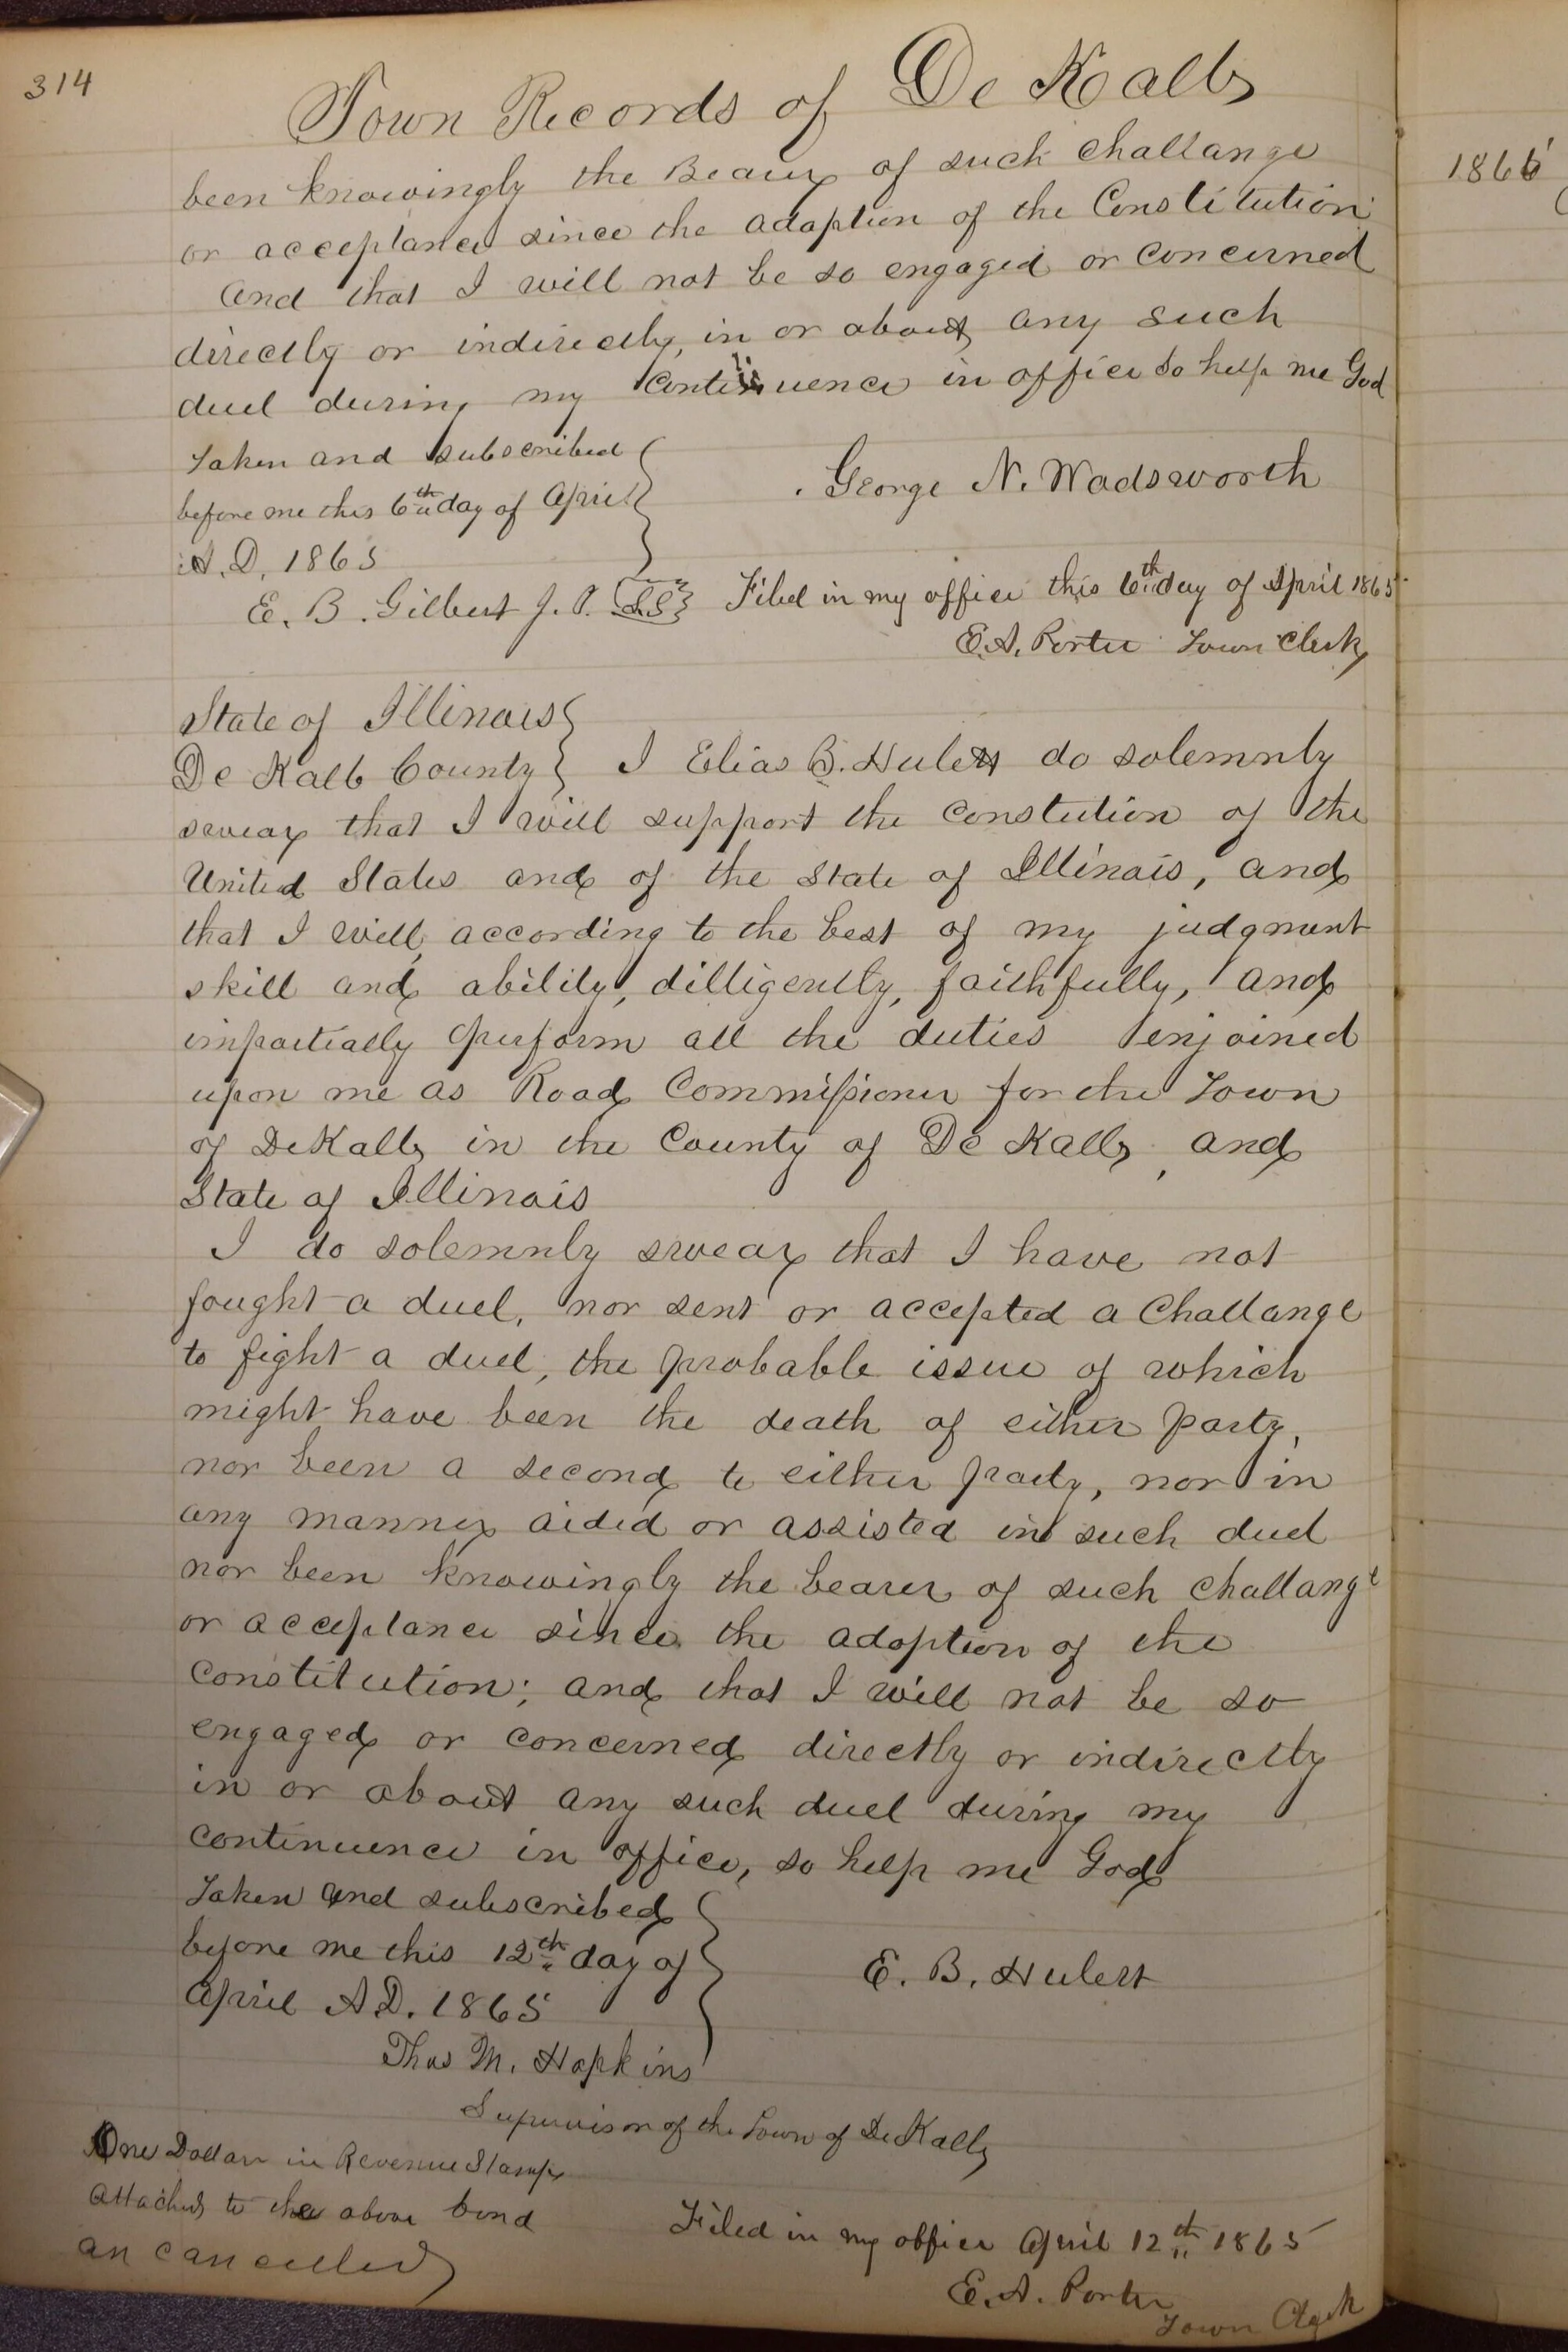 314
Town Records of De Kalb
been knowingly the Bearer of such challange
or acceptance since the adoption of the Constitution
and that I will not be so engaged or concerned
directly or indirectly, in or about any such
duel during my continuence in office so help me God
Taken and subscribed
before me this 6th day of April
A.D. 1865
George N. Wadsworth
E. B. Gilbert J. P. L.S.
Filed in my office this 6th day of April 1865
E. A. Porter Town Clerk
State of Illinois
De Kalb County I Elias B. Hulett do solemnly
swear that I will support the Constution of the
United States and of the State of Illinois, and
that I will, according to the best of my judgment
skill and ability, dilligently, faithfully, and
impartially perform all the duties enjoined
upon me as Road Commissioner for the Town
of DeKalb in the County of De Kalb, and
State of Illinois
I do solemnly swear that I have not
fought a duel, nor sent or accepted a Challange
to fight a duel, the probable issue of which
might have been the death of either party,
nor been a second to either party, nor in
any manner aided or assisted in such duel
nor been knowingly the bearer of such challange
or acceptance since the adoption of the
Constitution; and that I will not be so
engaged or concerned directly or indirectly
in or about any such duel during my
continuence in office, so help me God
Taken and subscribed
before me this 12th day of
April A.D. 1865
E. B. Hulett
Thos M. Hopkins
Supervisor of the Town of DeKalb
One Dollar in Revenue Stamps
attached to the above bond
an cancelled
Filed in my office April 12th 1865
E. A. Porter
Town Clerk